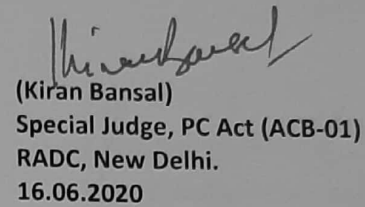 (Kiran Bansal)
Special Judge, PC Act (ACB-01)
RADC, New Delhi.
16.06.2020